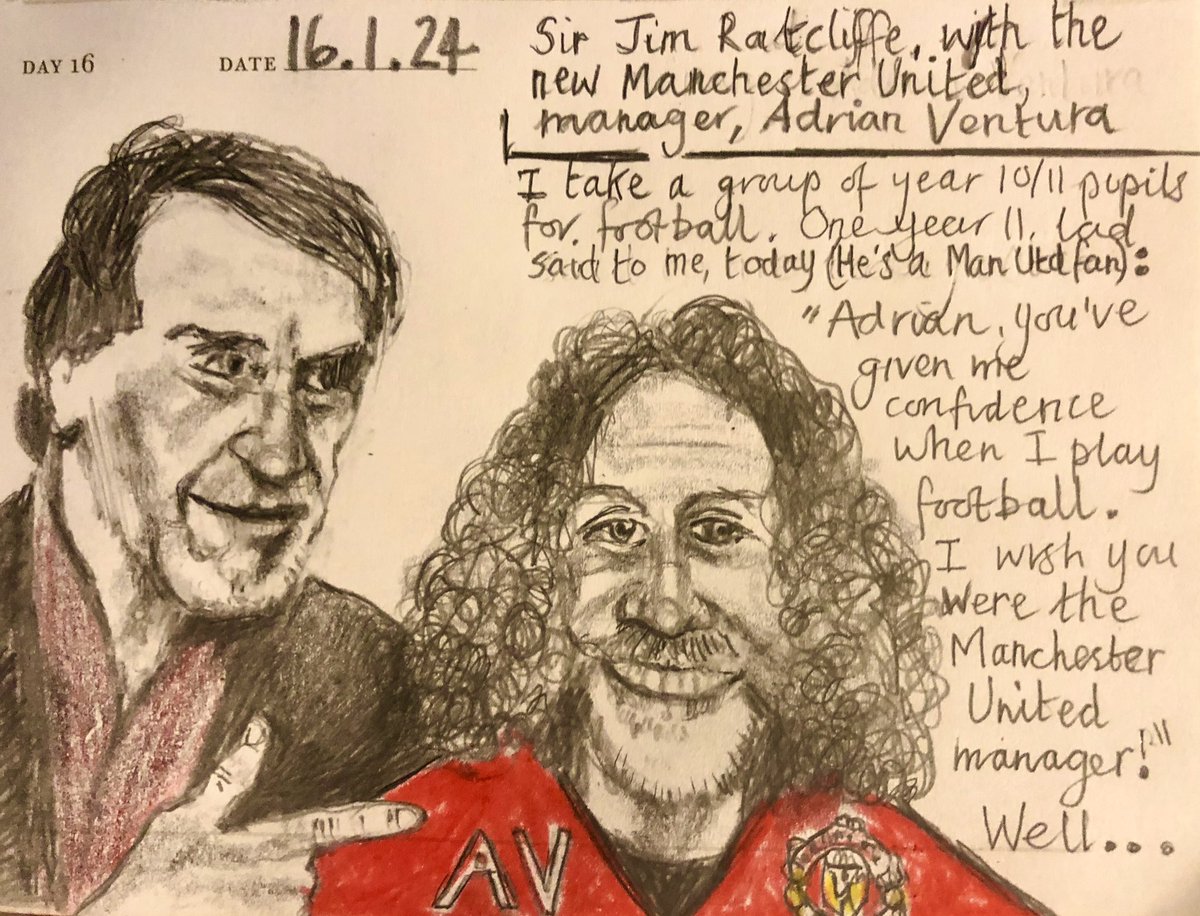 DAY 16
DATE 16.1.24
Sir Jim Ratcliffe, with the
new Manchester United,
manager, Adrian Ventura
I take a group of year 10/11 pupils
for football. One year 11, lad
said to me, today (He's a Man Utd fan):
"Adrian, you've
given me
confidence
when I play
football.
I wish you
were the
Manchester
United
manager!"
Well...
AV